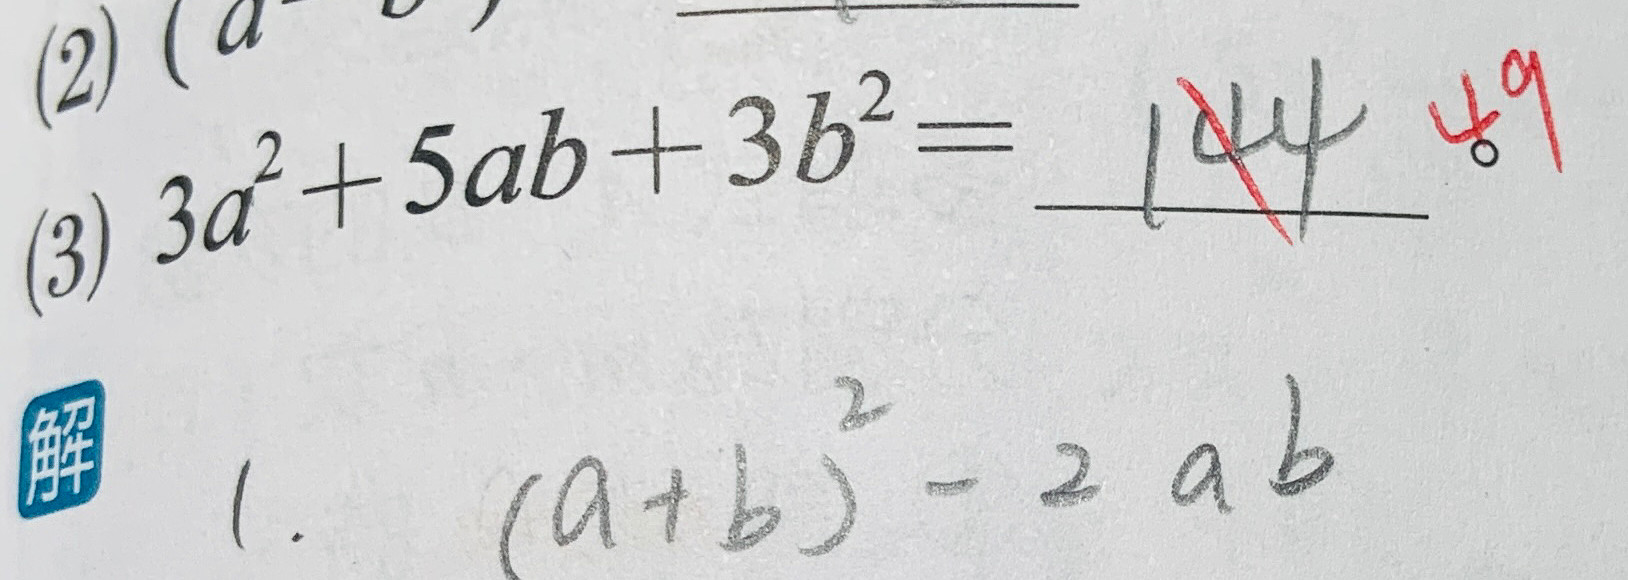 (2) (a
(3) 3a² + 5ab + 3b² = 144 49。
解
1. (a+b)² - 2ab